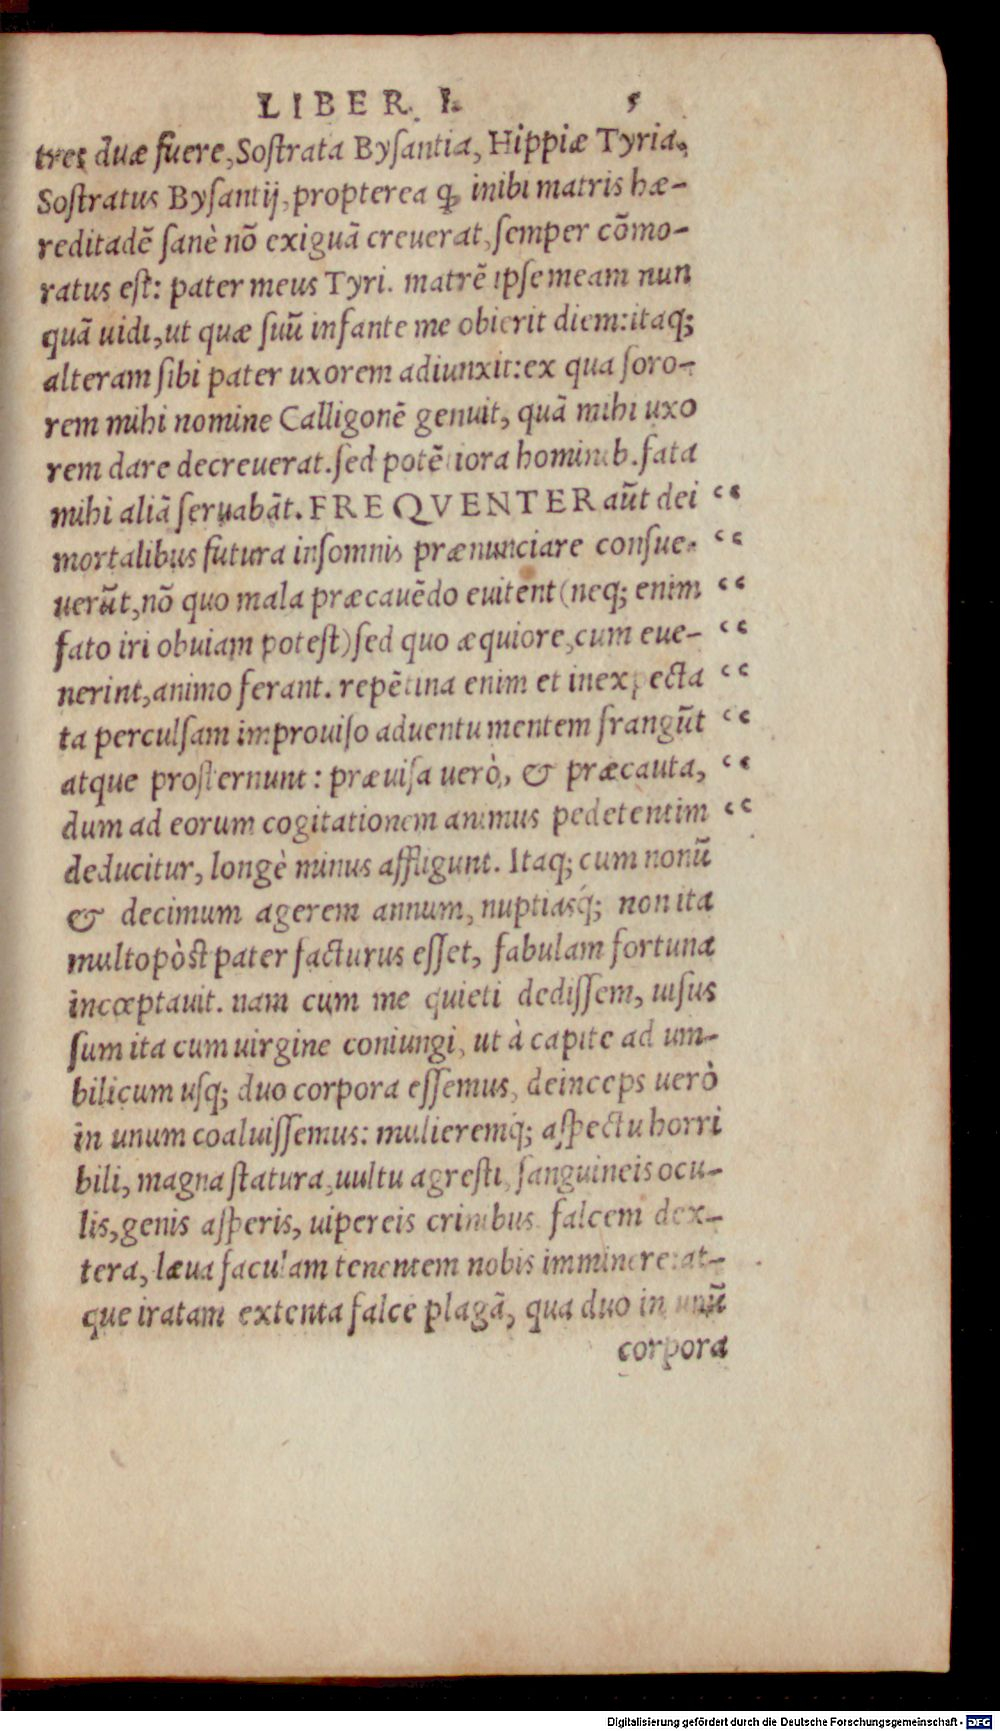 LIBER I. 5
tres duæ fuere, Soſtrata Byſantia, Hippiæ Tyria.
Soſtratus Byſantij, propterea ꝙ inibi matris hæ-
reditadē ſanè nō exiguā creuerat, ſemper cōmo-
ratus eſt: pater meus Tyri. matrē ipſe meam nun
quā uidi, ut quæ ſuū infante me obierit diem: itaq;
alteram ſibi pater uxorem adiunxit: ex qua ſoro-
rem mihi nomine Calligonē genuit, quā mihi uxo
rem dare decreuerat. ſed potētiora hominib. fata
mihi aliā ſeruabāt. FREQVENTER aūt dei “
mortalibus futura inſomnis prænunciare conſue- “
uerūt, nō quo mala præcauēdo euitent (neq; enim “
fato iri obuiam poteſt) ſed quo æquiore, cum eue- “
nerint, animo ferant. repētina enim et inexpecta “
ta perculſam improuiſo aduentu mentem frangūt “
atque proſternunt: præuiſa uerò, & præcauta, “
dum ad eorum cogitationem animus pedetentim “
deducitur, longè minus affligunt. Itaq; cum nonū
& decimum agerem annum, nuptiasq́; non ita
multopòſt pater facturus eſſet, fabulam fortuna
incœptauit. nam cum me quieti dediſſem, uiſus
ſum ita cum uirgine coniungi, ut à capite ad um-
bilicum uſq; duo corpora eſſemus, deinceps uerò
in unum coaluiſſemus: mulieremq́; aſpectu horri
bili, magna ſtatura, uultu agreſti, ſanguineis ocu-
lis, genis aſperis, uipereis crinibus falcem dex-
tera, læua faculam tenentem nobis imminere: at-
que iratam extenta falce plagā, qua duo in unū
corpora
Digitalisierung gefördert durch die Deutsche Forschungsgemeinschaft - DFG